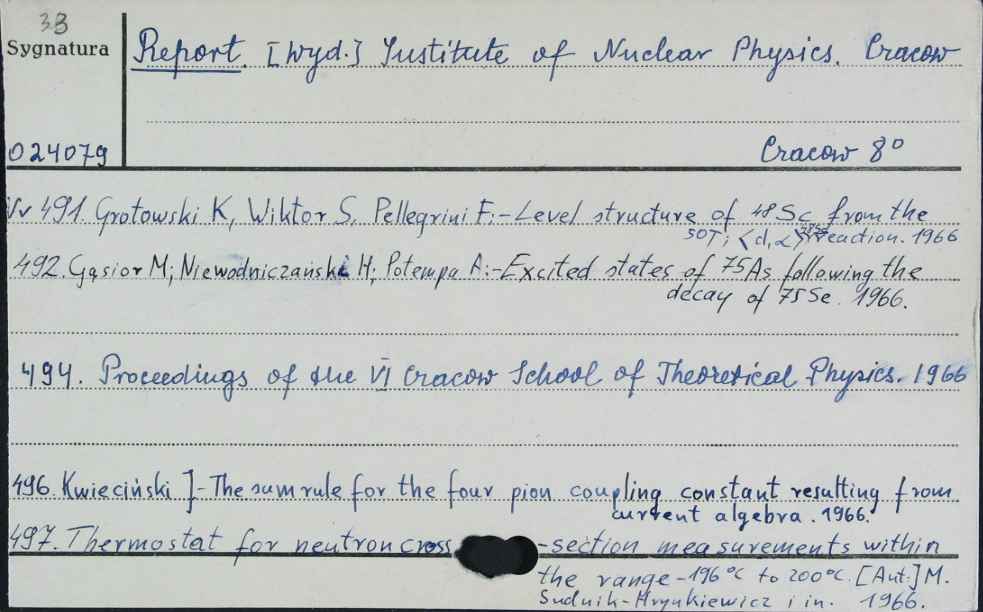 33
Sygnatura
Report. [Wyd.] Institute of Nuclear Physics. Cracow
024079
Cracow 8°
Nr 491. Grotowski K, Wiktor S, Pellegrini F:-Level structure of 48Sc from the
50Ti <d,α> reaction. 1966
492. Gąsior M; Niewodniczański H; Potempa A:-Excited states of 75As following the
decay of 75Se. 1966.
494. Proceedings of the VI Cracow School of Theoretical Physics. 1966
496. Kwieciński J-The sum rule for the four pion coupling constant resulting from
current algebra. 1966.
497. Thermostat for neutron cross -section measurements within
the range -196°C to 200°C. [Aut:] M.
Sudnik-Hrynkiewicz i in. 1966.